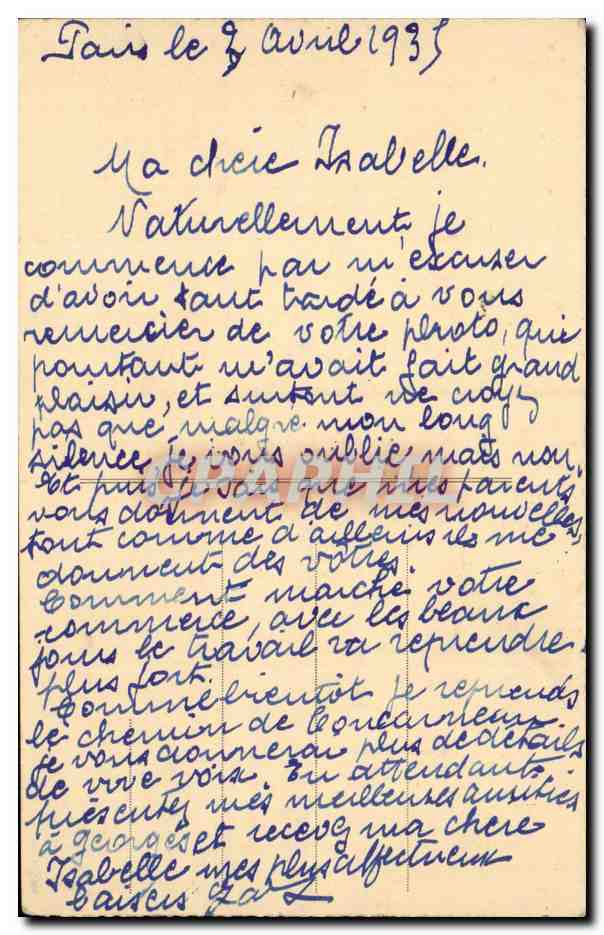 Paris le 2 Avril 1935
Ma chère Isabelle.
Naturellement je
commence par m'excuser
d'avoir tant tardé à vous
remercier de votre photo, qui
pourtant m'avait fait grand
plaisir, et surtout ne croyez
pas que malgré mon long
silence je vous oublie mais non.
Et puis je sais que mes parents
vous donnent de mes nouvelles,
tout comme d'ailleurs ils me
donnent des vôtres.
Comment marche votre
commerce, avec les beaux
jours le travail va reprendre
plus fort.
Comme bientôt je reprends
le chemin de Concarneau
je vous donnerai plus de détails
de vive voix. En attendant
présentez mes meilleures amitiés
à Georges et recevez ma chère
Isabelle mes plus affectueux
baisers